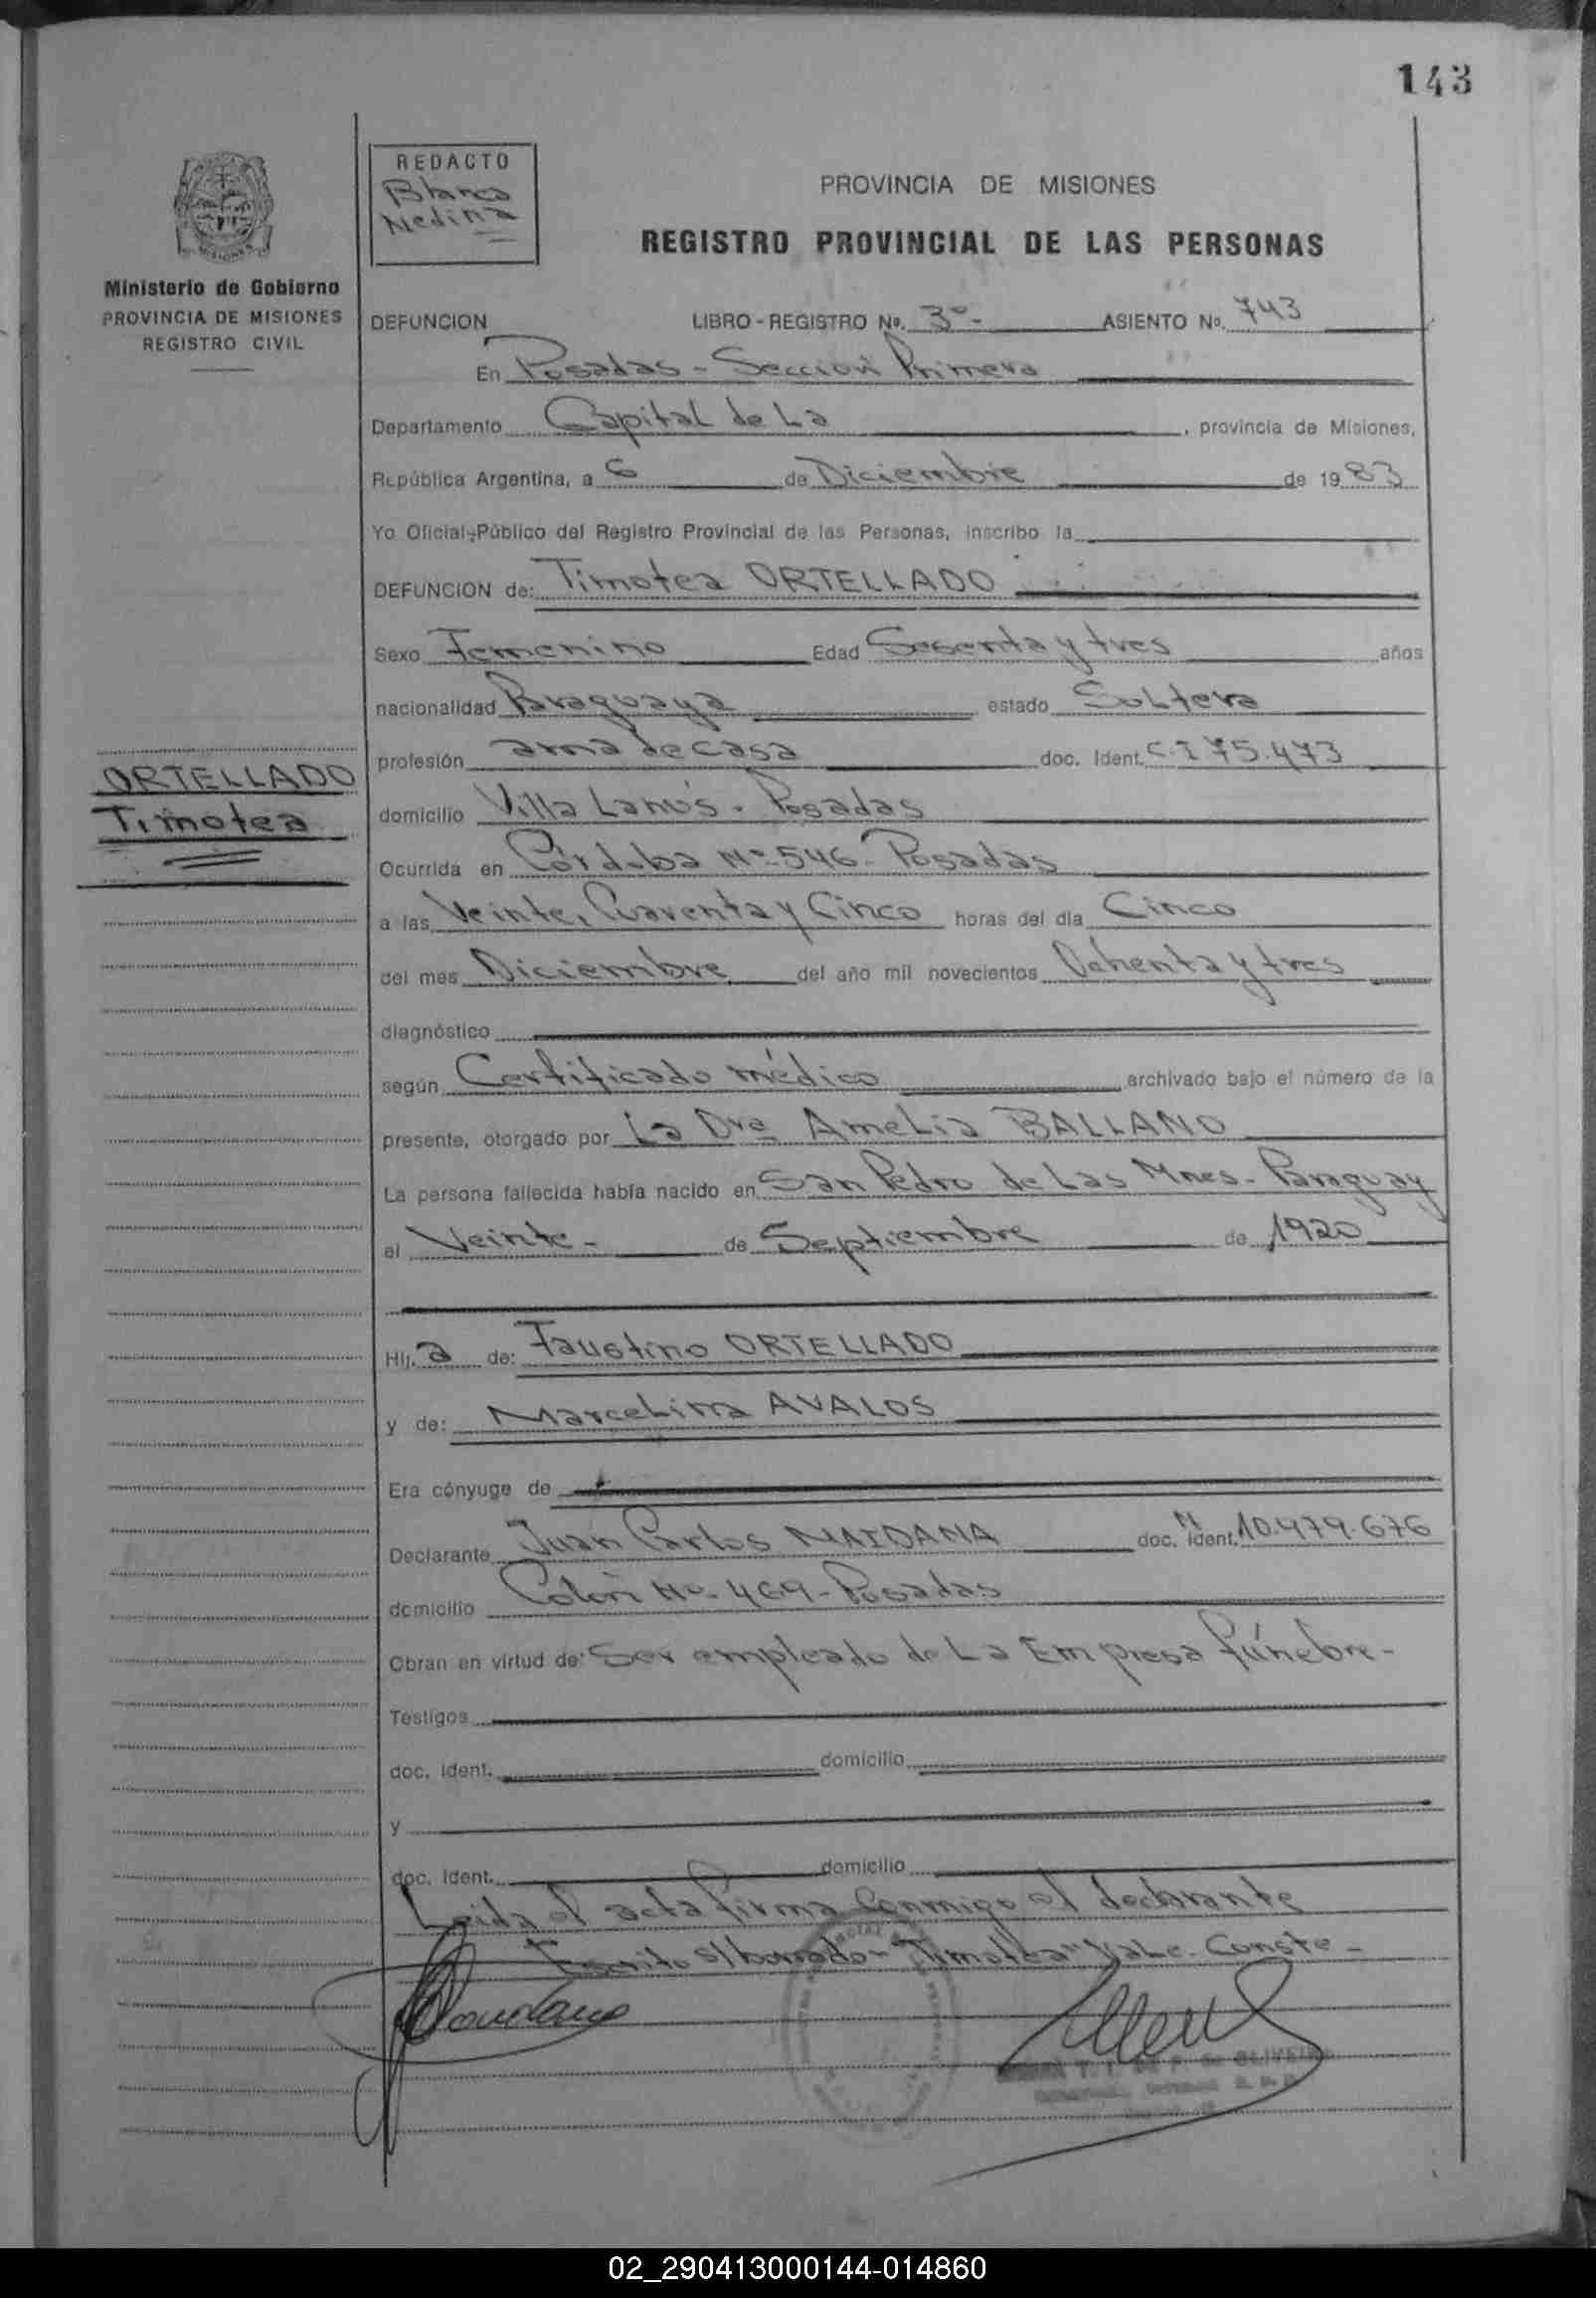 143
REDACTO
Blanca
Medina
PROVINCIA DE MISIONES
REGISTRO PROVINCIAL DE LAS PERSONAS
Ministerio de Gobierno
PROVINCIA DE MISIONES
REGISTRO CIVIL
DEFUNCION LIBRO - REGISTRO No. 3º- ASIENTO No. 743
En Posadas - Sección Primera
Departamento Capital de La , provincia de Misiones,
República Argentina, a 6 de Diciembre de 1983
Yo Oficial-Público del Registro Provincial de las Personas, inscribo la
DEFUNCION de: Timotea ORTELLADO
Sexo Femenino Edad Sesenta y tres años
nacionalidad Paraguaya estado Soltera
profesión ama de casa doc. Ident. C.I 75.473
ORTELLADO
Timotea
domicilio Villa Lanús - Posadas
Ocurrida en Córdoba Nº 546 - Posadas
a las Veinte, Cuarenta y Cinco horas del día Cinco
del mes Diciembre del año mil novecientos Ochenta y tres
diagnóstico
según Certificado médico archivado bajo el número de la
presente, otorgado por La Dra Amelia BALLANO
La persona fallecida había nacido en San Pedro de Las Mnes - Paraguay
el Veinte - de Septiembre de 1920
Hij.a de: Faustino ORTELLADO
y de: Marcelina AVALOS
Era cónyuge de
Declarante Juan Carlos MAIDANA doc. Ident. 10.979.676
domicilio Colón Nº - 469 - Posadas
Obran en virtud de: Ser empleado de La Empresa fúnebre -
Testigos
doc. Ident. domicilio
y
doc. Ident. domicilio
Leida el acta firma Conmigo el declarante
Escrito s/borrado - "Timotea" Vale. Conste -
OLIVEIRA
02_290413000144-014860